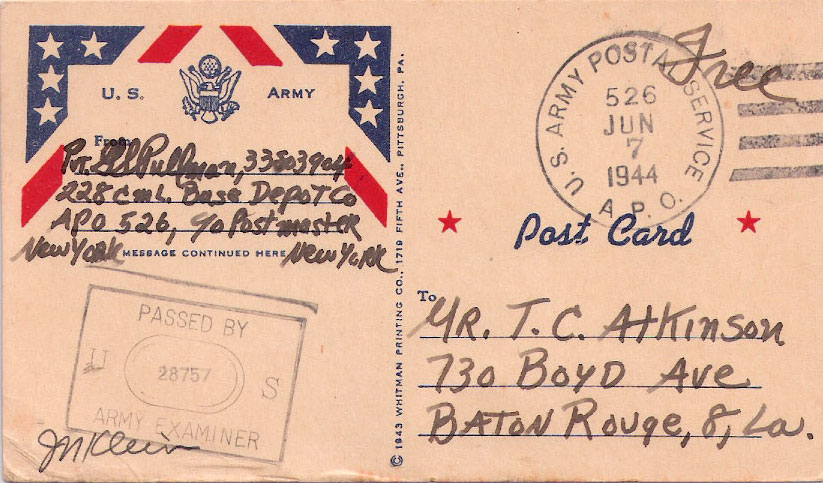 U. S. ARMY
From
Pvt. Pullman, 33803904
228 cml. Base Depot Co
APO 526, c/o Postmaster
New York New York
MESSAGE CONTINUED HERE
PASSED BY
U 28757 S
ARMY EXAMINER
© 1943 WHITMAN PRINTING CO., 1719 FIFTH AVE., PITTSBURGH, PA.
Free
U. S. ARMY POSTAL SERVICE
526
JUN
7
1944
A. P. O.
Post Card
To
MR. T. C. Atkinson
730 BOYD Ave
BATON Rouge, 8, La.